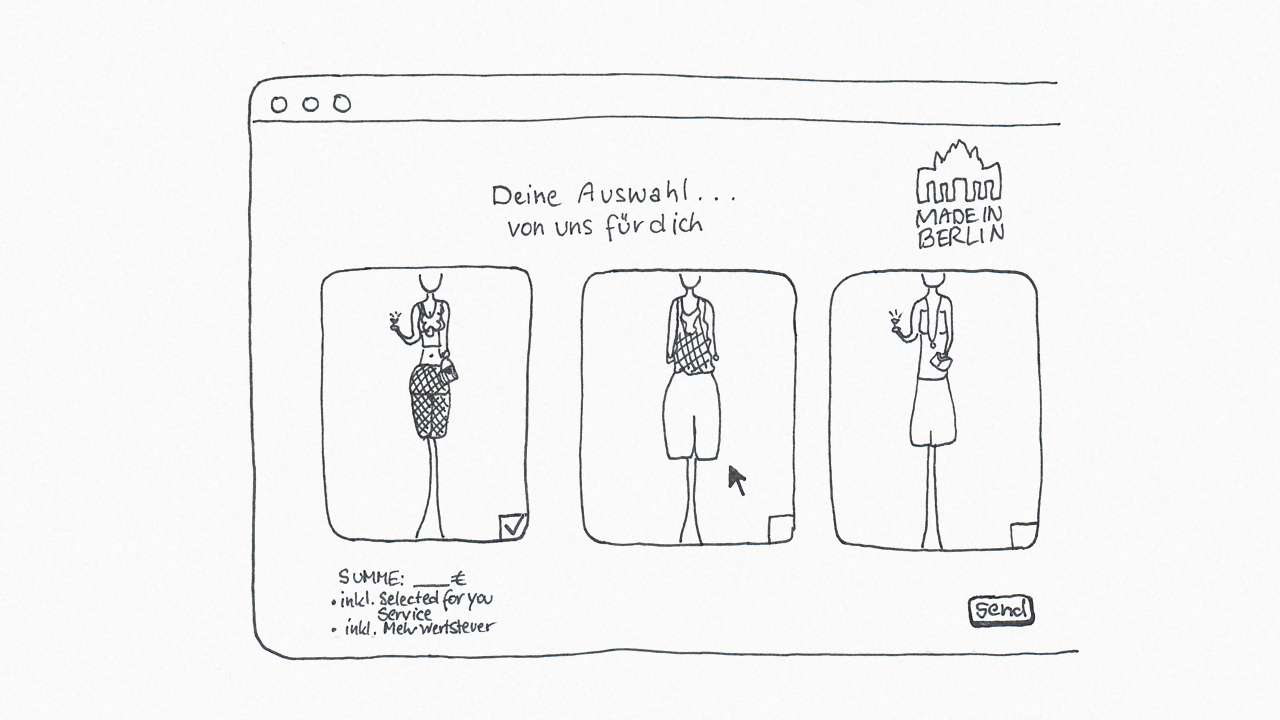 Deine Auswahl...
von uns für dich
MADE IN
BERLIN
SUMME: ____€
• inkl. Selected for you
Service
• inkl. Mehrwertsteuer
Send